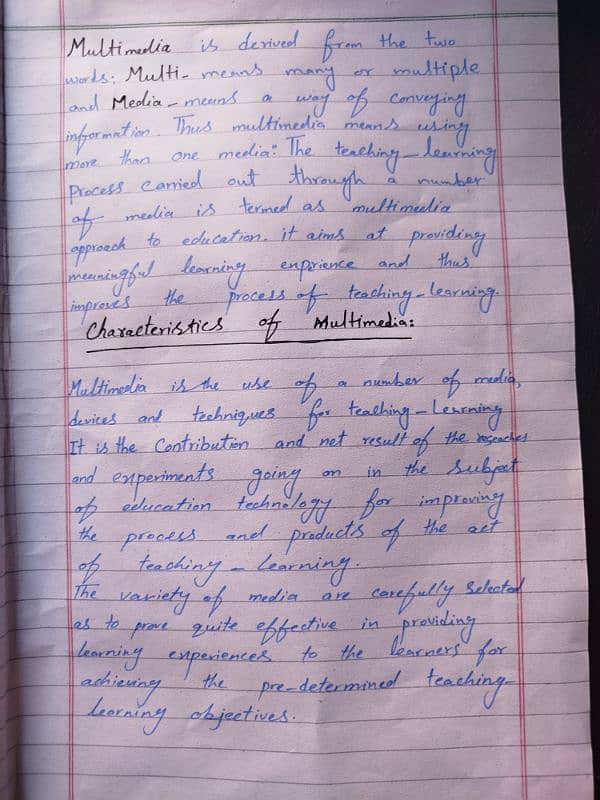 Multimedia is derived from the two
words: Multi- means many or multiple
and Media - means a way of conveying
information. Thus multimedia means using
more than one media". The teaching-learning
Process carried out through a number
of media is termed as multimedia
approach to education. it aims at providing
meaningful learning enprience and thus
improves the process of teaching-learning.
Characteristics of Multimedia:
Multimedia is the use of a number of media,
devices and techniques for teaching-Learning
It is the Contribution and net result of the reseaches
and experiments going on in the Subject
of education technology for improving
the process and products of the act
of teaching - Learning.
The variety of media are carefully Selected
as to prove quite effective in providing
learning experiences to the learners for
achieving the pre-determined teaching-
learning objectives.